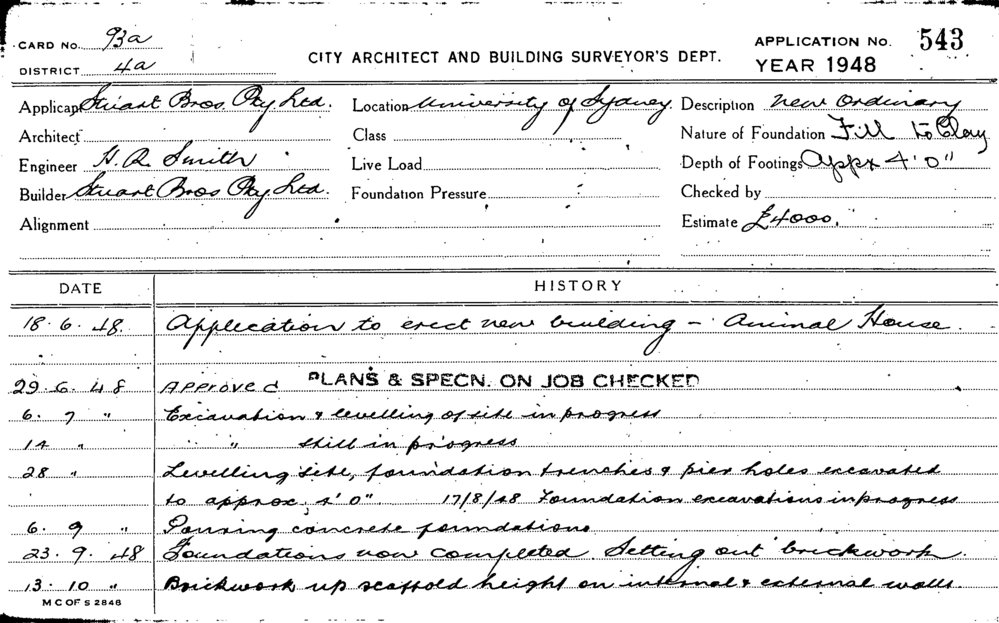 CARD NO. 93a
DISTRICT 4a
CITY ARCHITECT AND BUILDING SURVEYOR'S DEPT.
APPLICATION NO. 543
YEAR 1948
Applicant Stuart Bros Pty Ltd. Location University of Sydney Description New Ordinary
Architect Class Nature of Foundation Fill to Clay
Engineer H. R. Smith Live Load Depth of Footings Appx 4' 0"
Builder Stuart Bros Pty Ltd. Foundation Pressure Checked by
Alignment Estimate £4000.
DATE HISTORY
18. 6. 48. Application to erect new building – Animal House.
29. 6. 48 Approved PLANS & SPECN. ON JOB CHECKED
6. 7 " Excavation & levelling of site in progress
14 " " still in progress
28 " Levelling site, foundation trenches & pier holes excavated
to approx. 4' 0". 17/8/48 Foundation excavations in progress
6. 9 " Pouring concrete foundations
23. 9. 48 Foundations now completed. Setting out brickwork.
13. 10 " Brickwork up scaffold height on internal & external walls.
M C OF S 2848